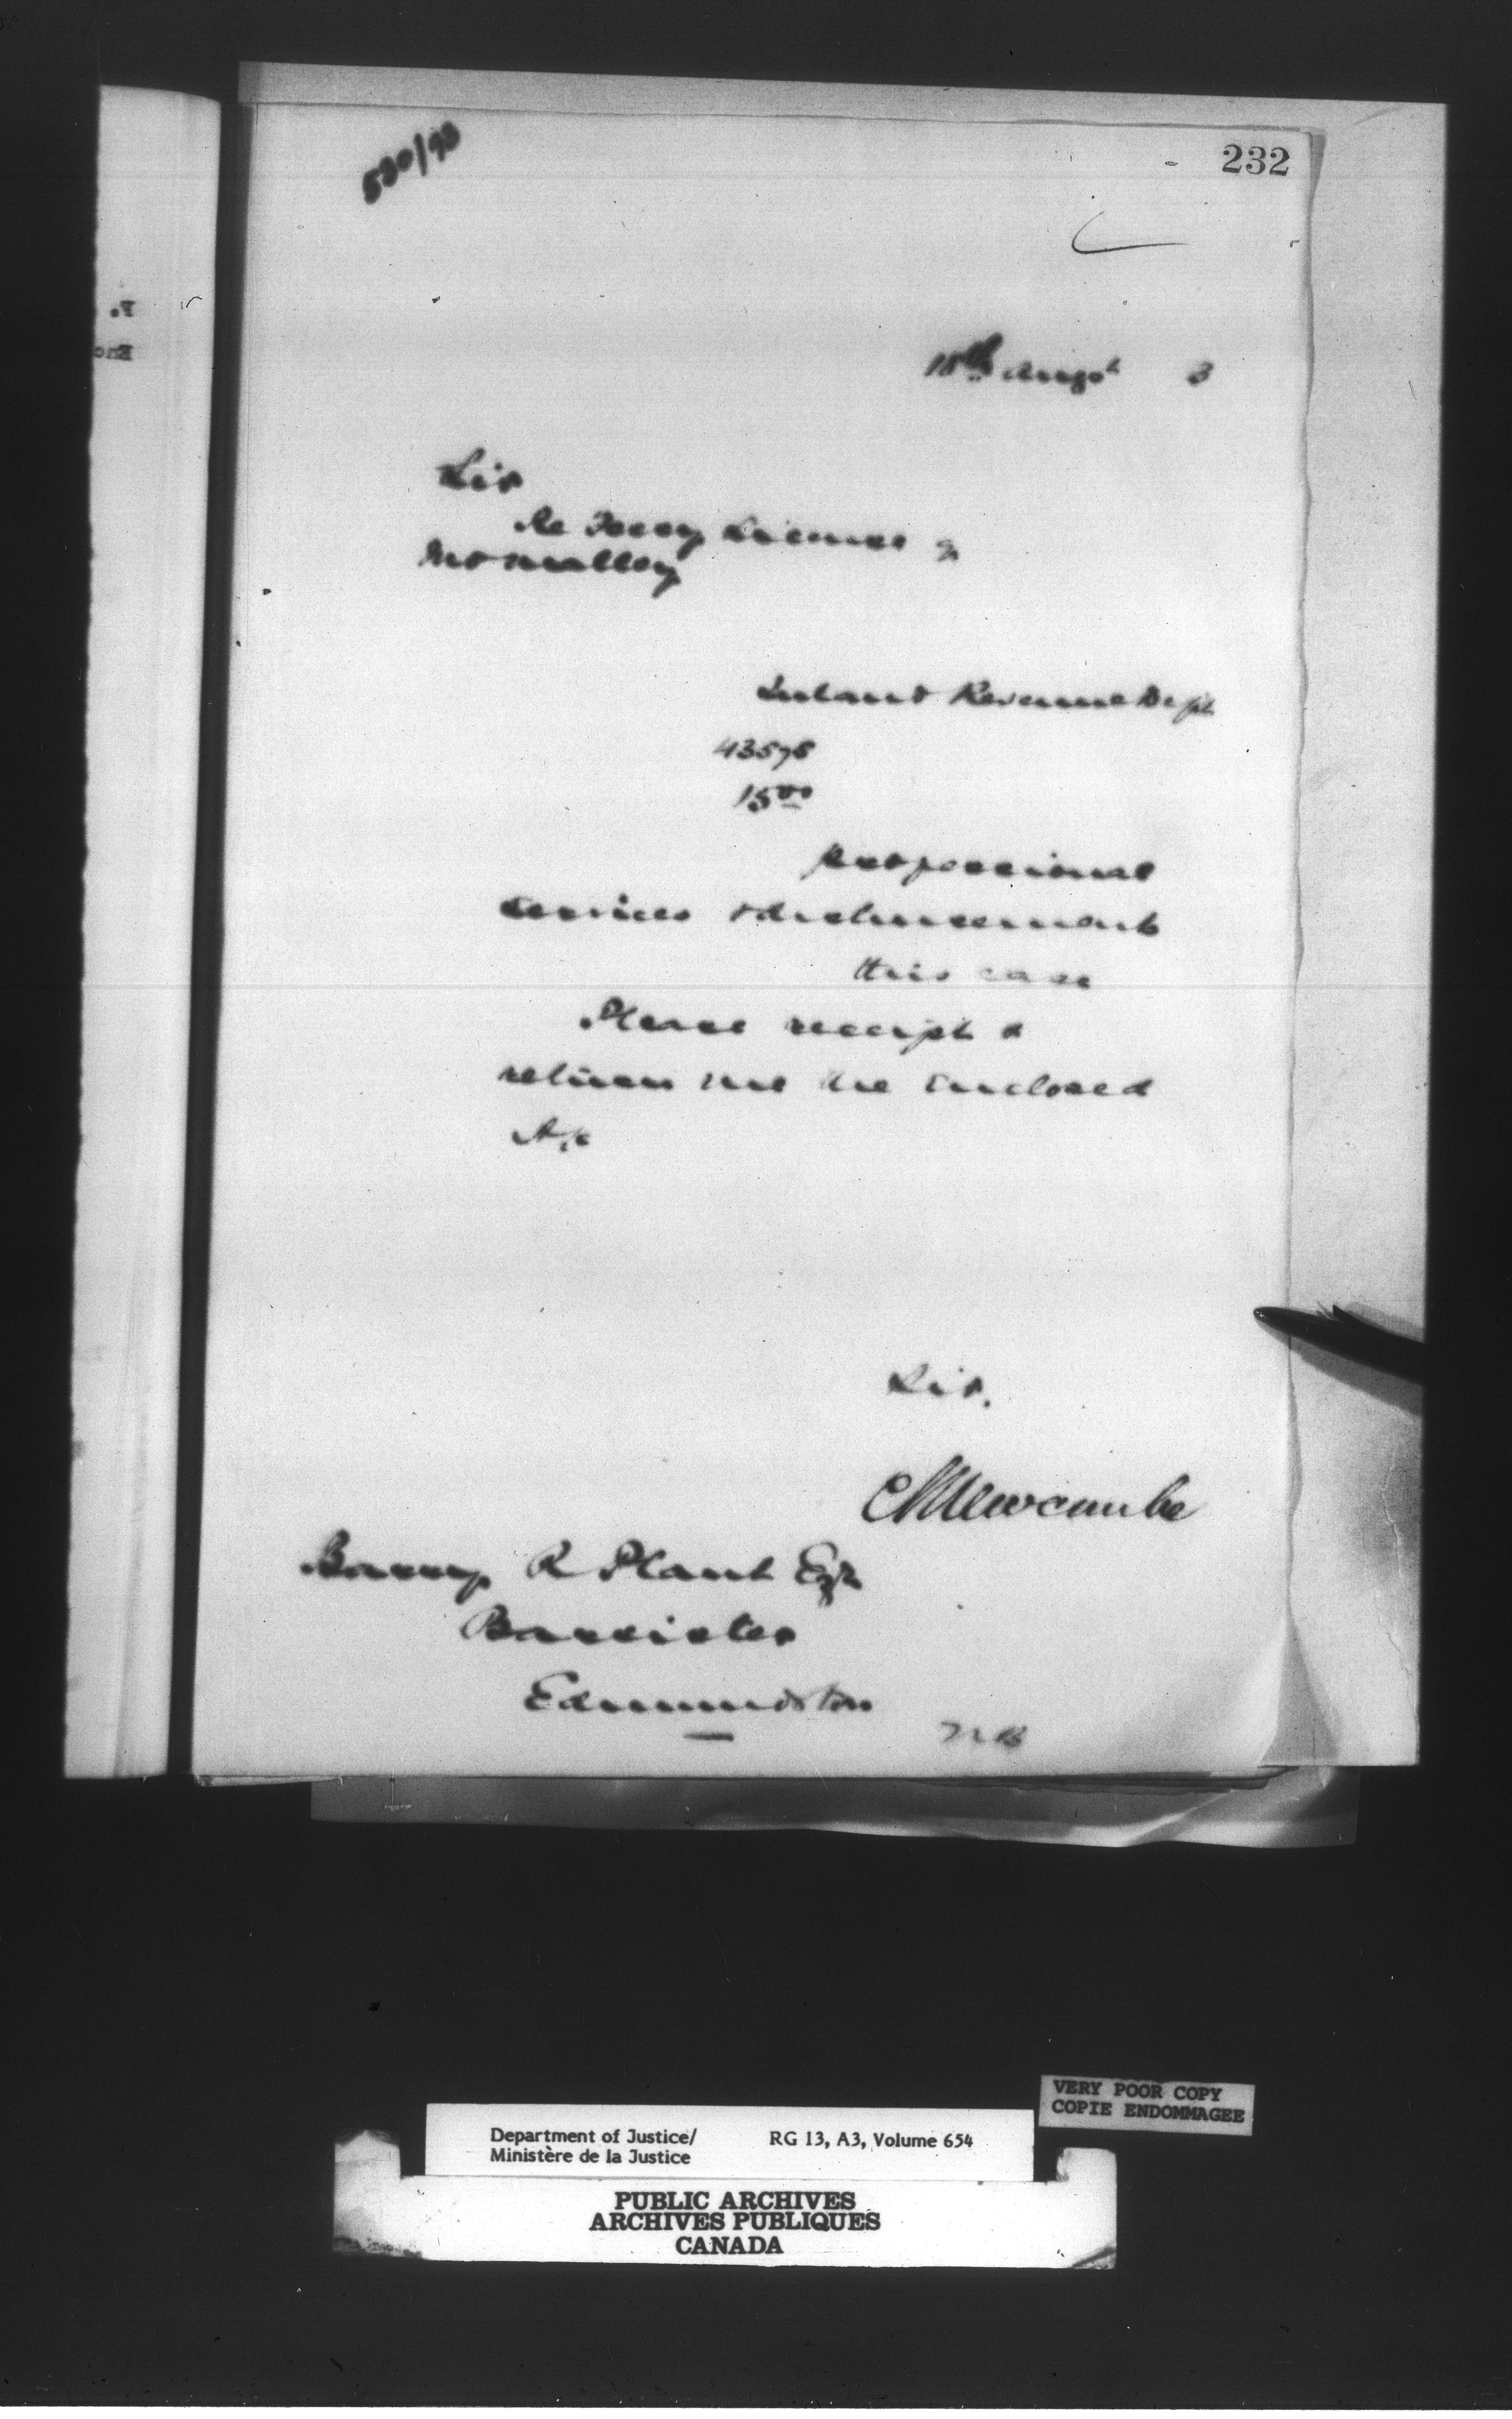 580/93
232
18th Augst 3
Sir
Re Ferry License &
McNalley
Inland Revenue Dept
43578
15 00
professional
services & disbursements
this case
Please receipt &
return me the enclosed
A/c
Sir.
E L Newcombe
R Plant Esqr
Barrister
Edmundston
N B
F.
Enc
VERY POOR COPY
COPIE ENDOMMAGEE
Department of Justice/ RG 13, A3, Volume 654
Ministère de la Justice
PUBLIC ARCHIVES
ARCHIVES PUBLIQUES
CANADA